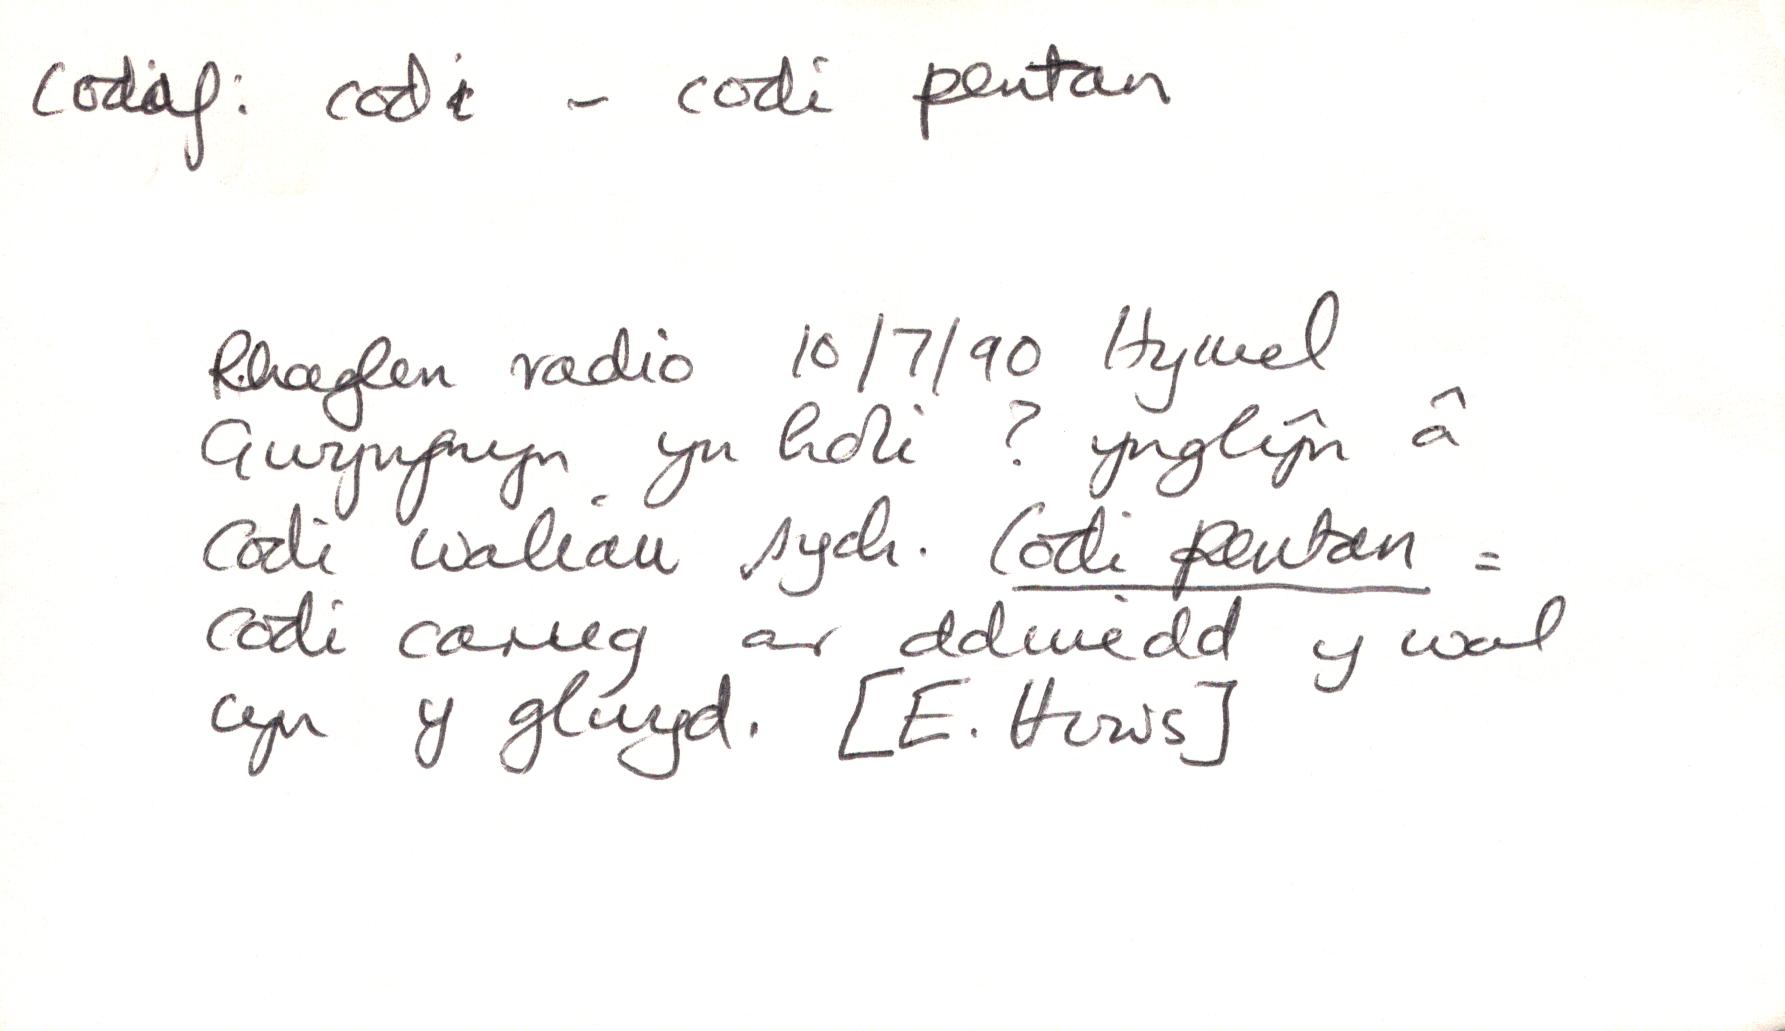 Codaf: codi - codi pentan
Rhaglen radio 10/7/90 Hywel
Gwynfryn yn holi ? ynglŷn â
codi waliau sych. Codi pentan =
codi carreg ar ddiwedd y wal
cyn y glwyd. [E. Huws]